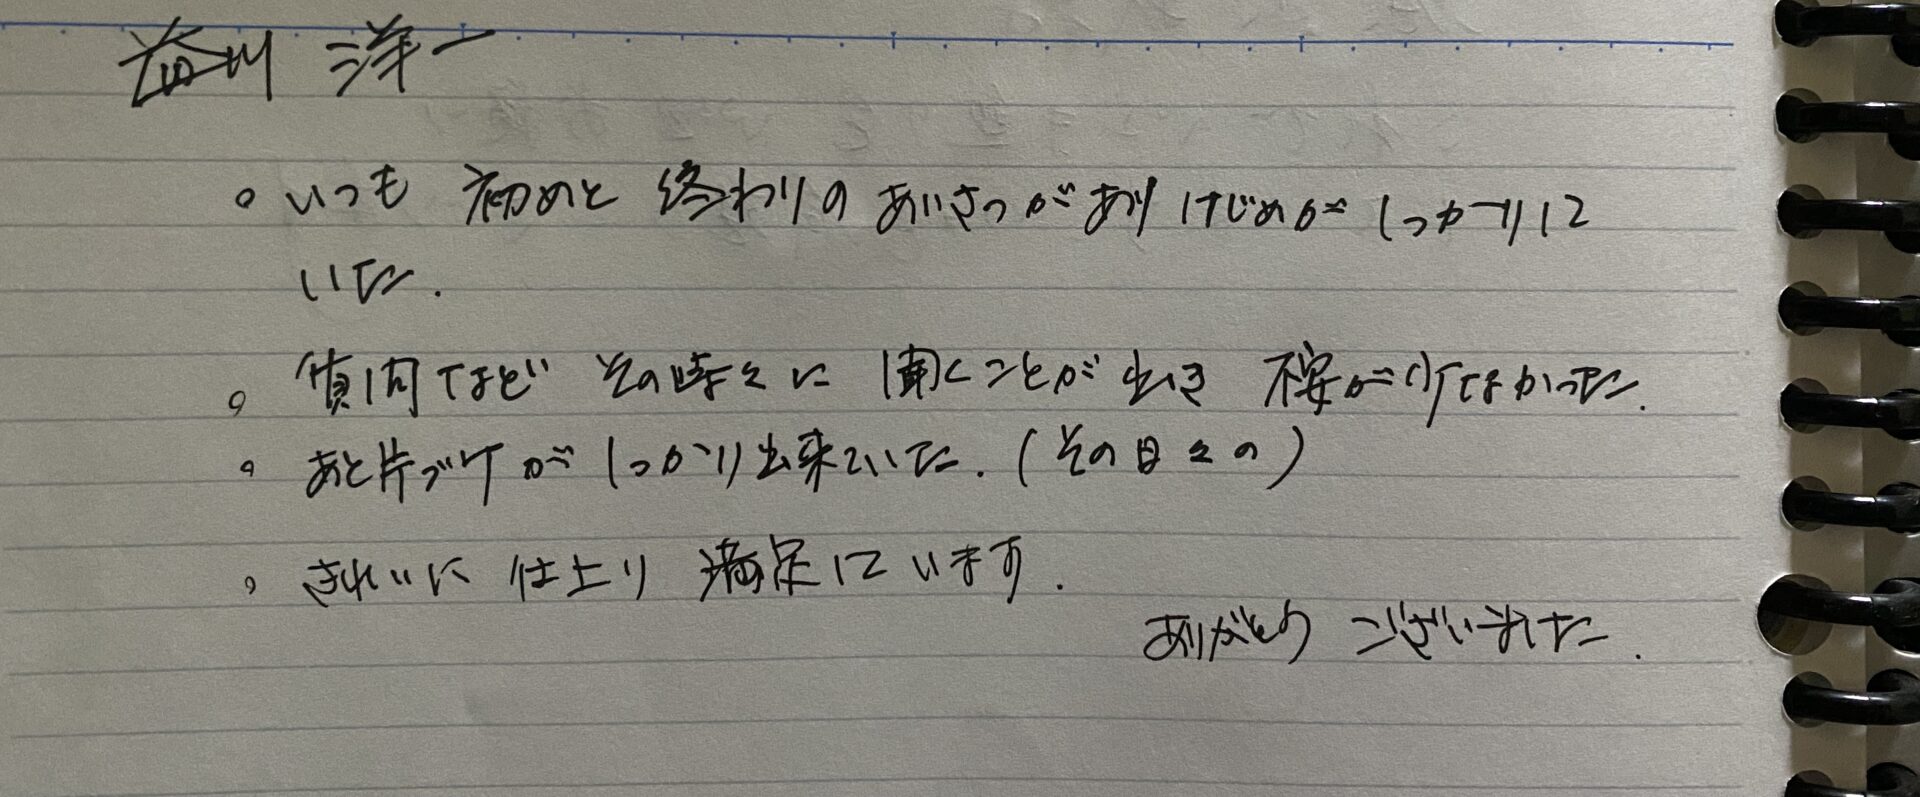 川 洋一
。いつも 初めと 終わりの あいさつがあり けじめが しっかりして
いた.
。質問など その時々に 聞くことが出き 不安がなかった.
。あと片づケが しっかり出来ていた.(その日々の)
。きれいに 仕上り 満足しています.
ありがとう ございました.